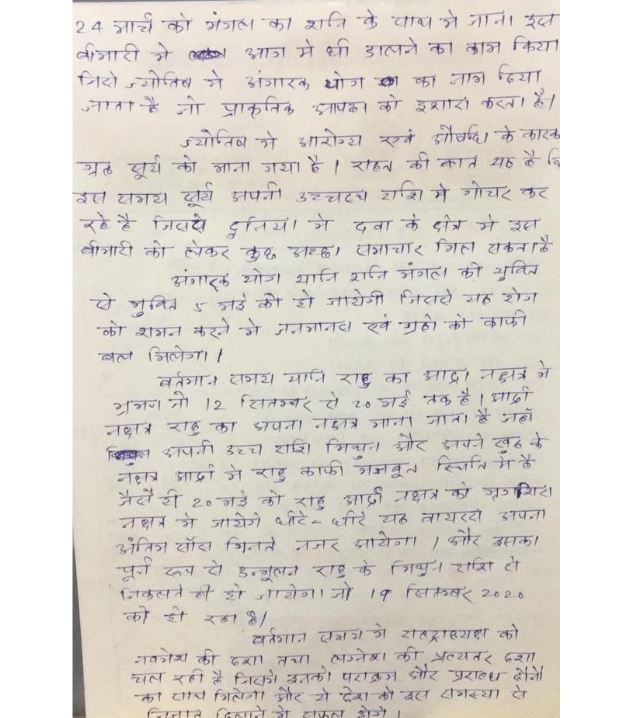 24 मार्च को मंगल का शनि के साथ मे जाना इस
बीमारी मे आग मे घी डालने का काम किया
जिसे ज्योतिष मे अंगारक योग का नाम दिया
जाता है जो प्राकृतिक आपदा को इशारा करता है।
ज्योतिष मे आरोग्य एवं औषधि के कारक
ग्रह सूर्य को माना गया है। राहत की बात यह है कि
इस समय सूर्य अपनी उच्चस्थ राशि मे गोचर कर
रहे है जिससे दुनिया मे दवा के क्षेत्र मे इस
बीमारी को लेकर कुछ अच्छा समाचार मिल सकता है
अंगारक योग यानि शनि मंगल की युक्ति
से मुक्ति 5 मई को हो जायेगी जिससे यह रोग
को शमन करने मे जनमानस एवं ग्रहो को काफी
बल मिलेगा।
बर्तमान समय यानि राहु का आर्द्रा नक्षत्र मे
भ्रमण जो 12 सितम्बर से 20 मई तक है। आर्द्रा
नक्षत्र राहु का अपना नक्षत्र माना जाता है जहाँ
अपनी उच्च राशि मिथुन और अपने खुद के
नक्षत्र आर्द्रा मे राहु काफी मजबूत स्थिति मे है
जैसे ही 20 मई को राहु आर्द्रा नक्षत्र को मृगशिरा
नक्षत्र मे जायेगे धीरे-धीरे यह वायरस अपना
अंतिम साँस गिनते नजर आयेगा। और इसका
पूर्ण रूप से उन्मूलन राहु के मिथुन राशि से
निकलते ही हो जायेगा जो 19 सितम्बर 2020
को हो रहा है।
बर्तमान समय मे राष्ट्राध्यक्ष को
नवमेश की दशा तथा लग्नेश की प्रत्यन्तर दशा
चल रही है जिससे उनको पराक्रम और प्रारब्ध दोनो
का साथ मिलेगा और ये देश को इस समस्या से
निजात दिलाने मे सफल होगे।